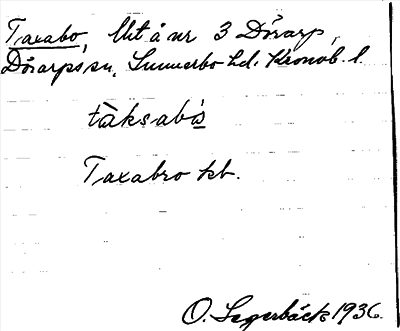 Taxabo, lht å nr 3 Dörarp,
Dörarps sn, Sunnerbo hd. Kronob. l.
tàksabós
Taxabro kb.
O. Segerbäck 1936.